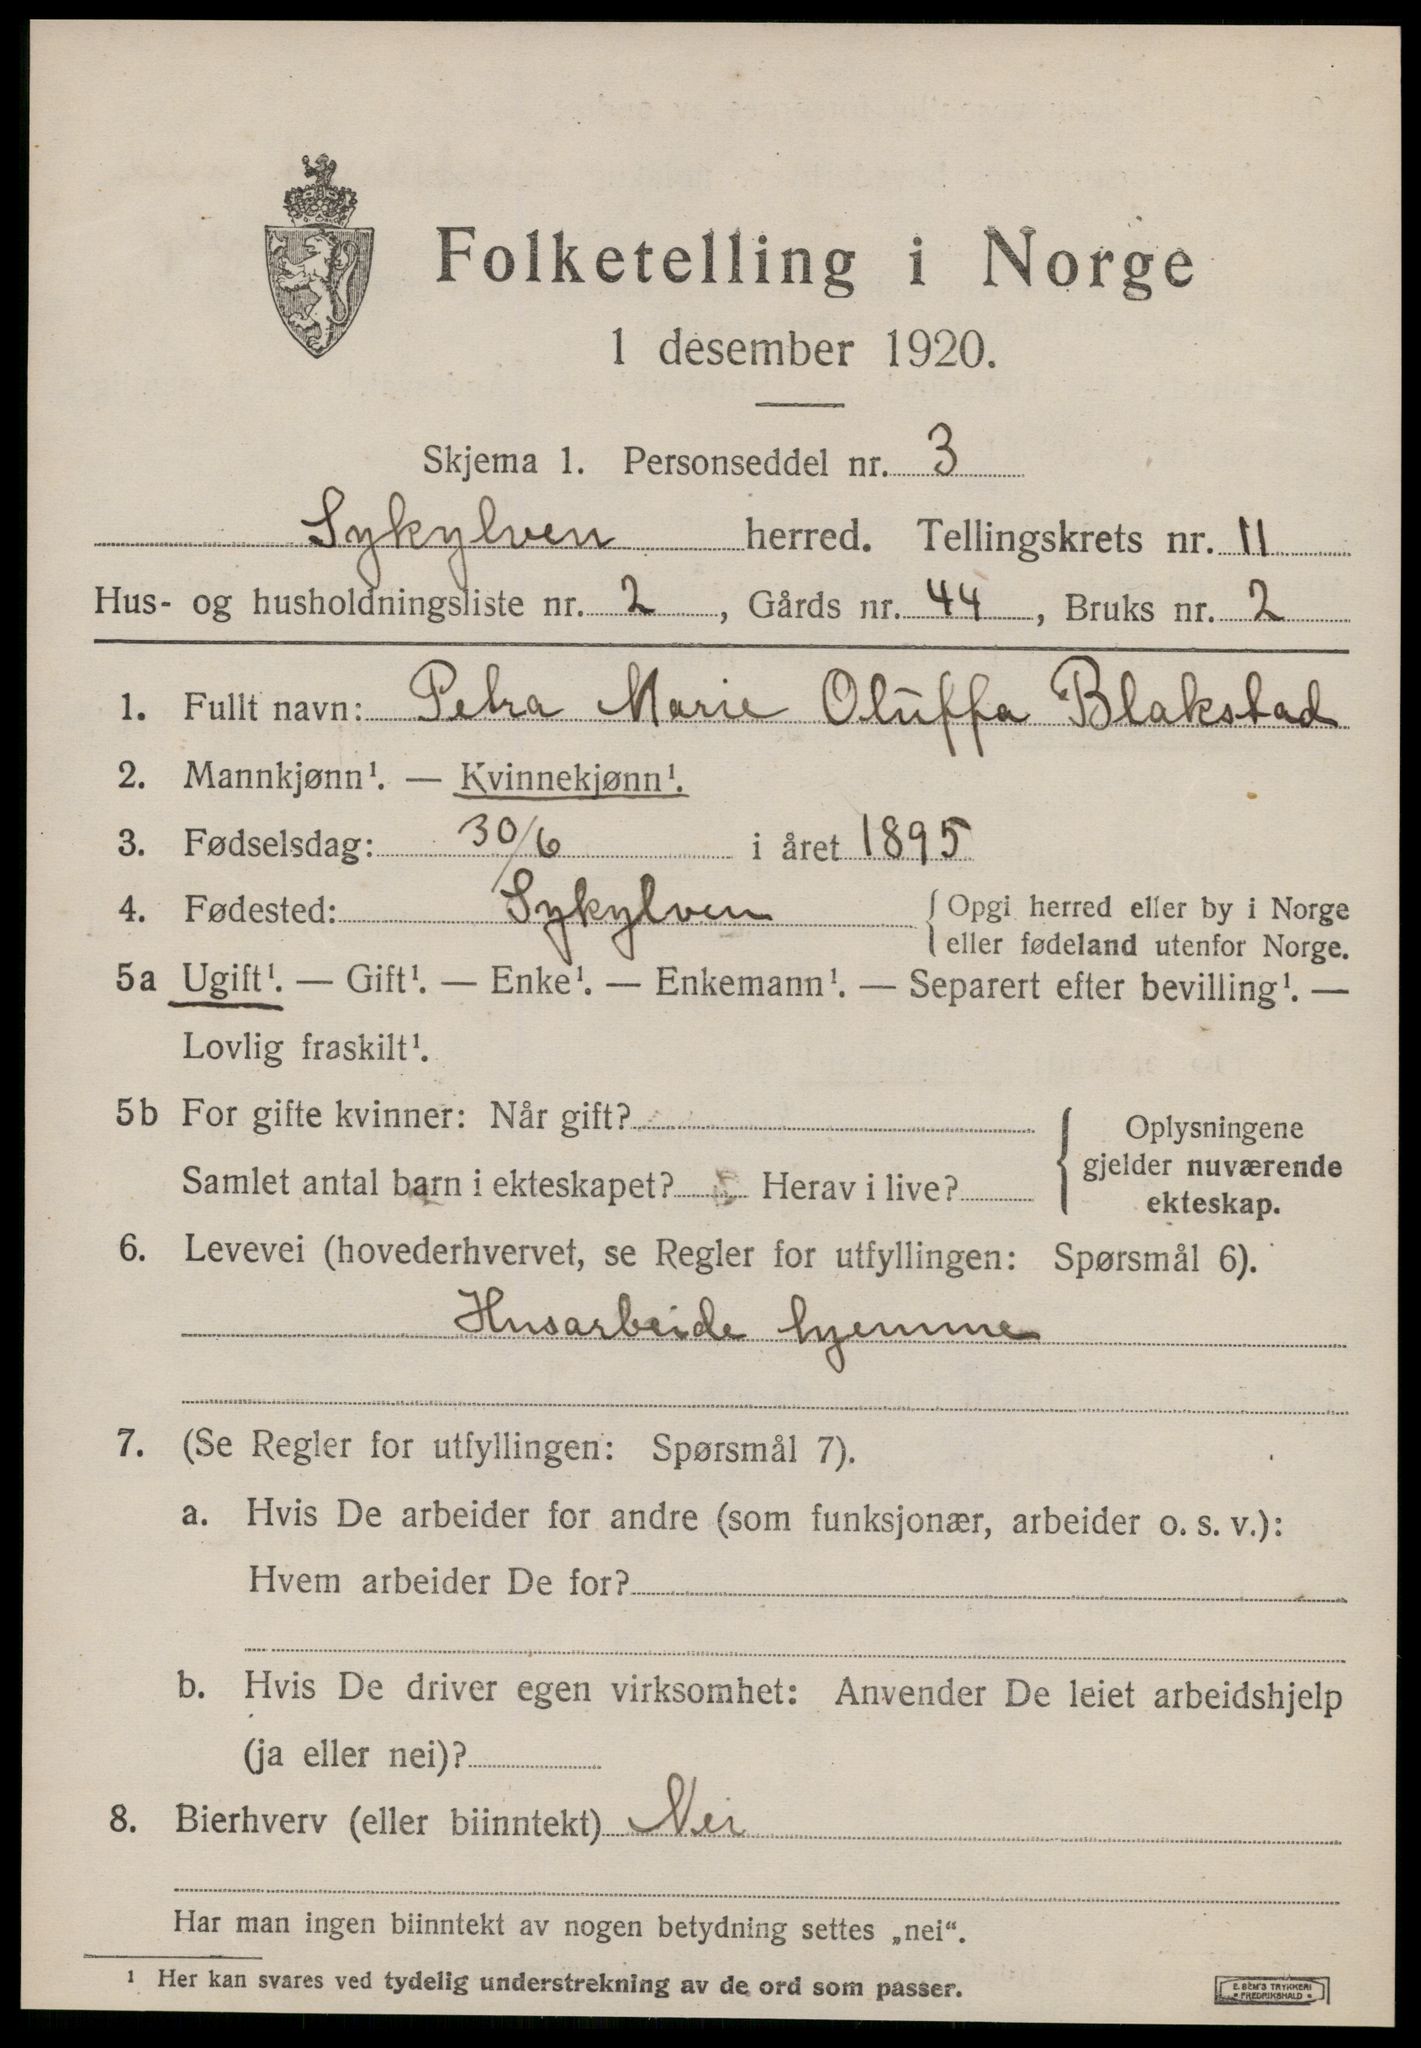 Folketelling i Norge
1 desember 1920.
Skjema 1. Personseddel nr. 3
Sykylven herred. Tellingskrets nr. 11
Hus- og husholdningsliste nr. 2, Gårds nr. 44, Bruks nr. 2
1. Fullt navn: Petra Marie Oluffa Blakstad
2. Mannkjønn¹. — Kvinnekjønn¹.
3. Fødselsdag: 30/6 i året 1895
4. Fødested: Sykylven { Opgi herred eller by i Norge
eller fødeland utenfor Norge.
5a Ugift¹. — Gift¹. — Enke¹. — Enkemann¹. — Separert efter bevilling¹. —
Lovlig fraskilt¹.
5b For gifte kvinner: Når gift?
Samlet antal barn i ekteskapet? Herav i live?
Oplysningene
gjelder nuværende
ekteskap.
6. Levevei (hovederhvervet, se Regler for utfyllingen: Spørsmål 6).
Husarbeide hjemme
7. (Se Regler for utfyllingen: Spørsmål 7).
a. Hvis De arbeider for andre (som funksjonær, arbeider o. s. v.):
Hvem arbeider De for?
b. Hvis De driver egen virksomhet: Anvender De leiet arbeidshjelp
(ja eller nei)?
8. Bierhverv (eller biinntekt) Nei
Har man ingen biinntekt av nogen betydning settes „nei“.
¹ Her kan svares ved tydelig understrekning av de ord som passer.
E. SEM'S TRYKKERI
FREDRIKSHALD